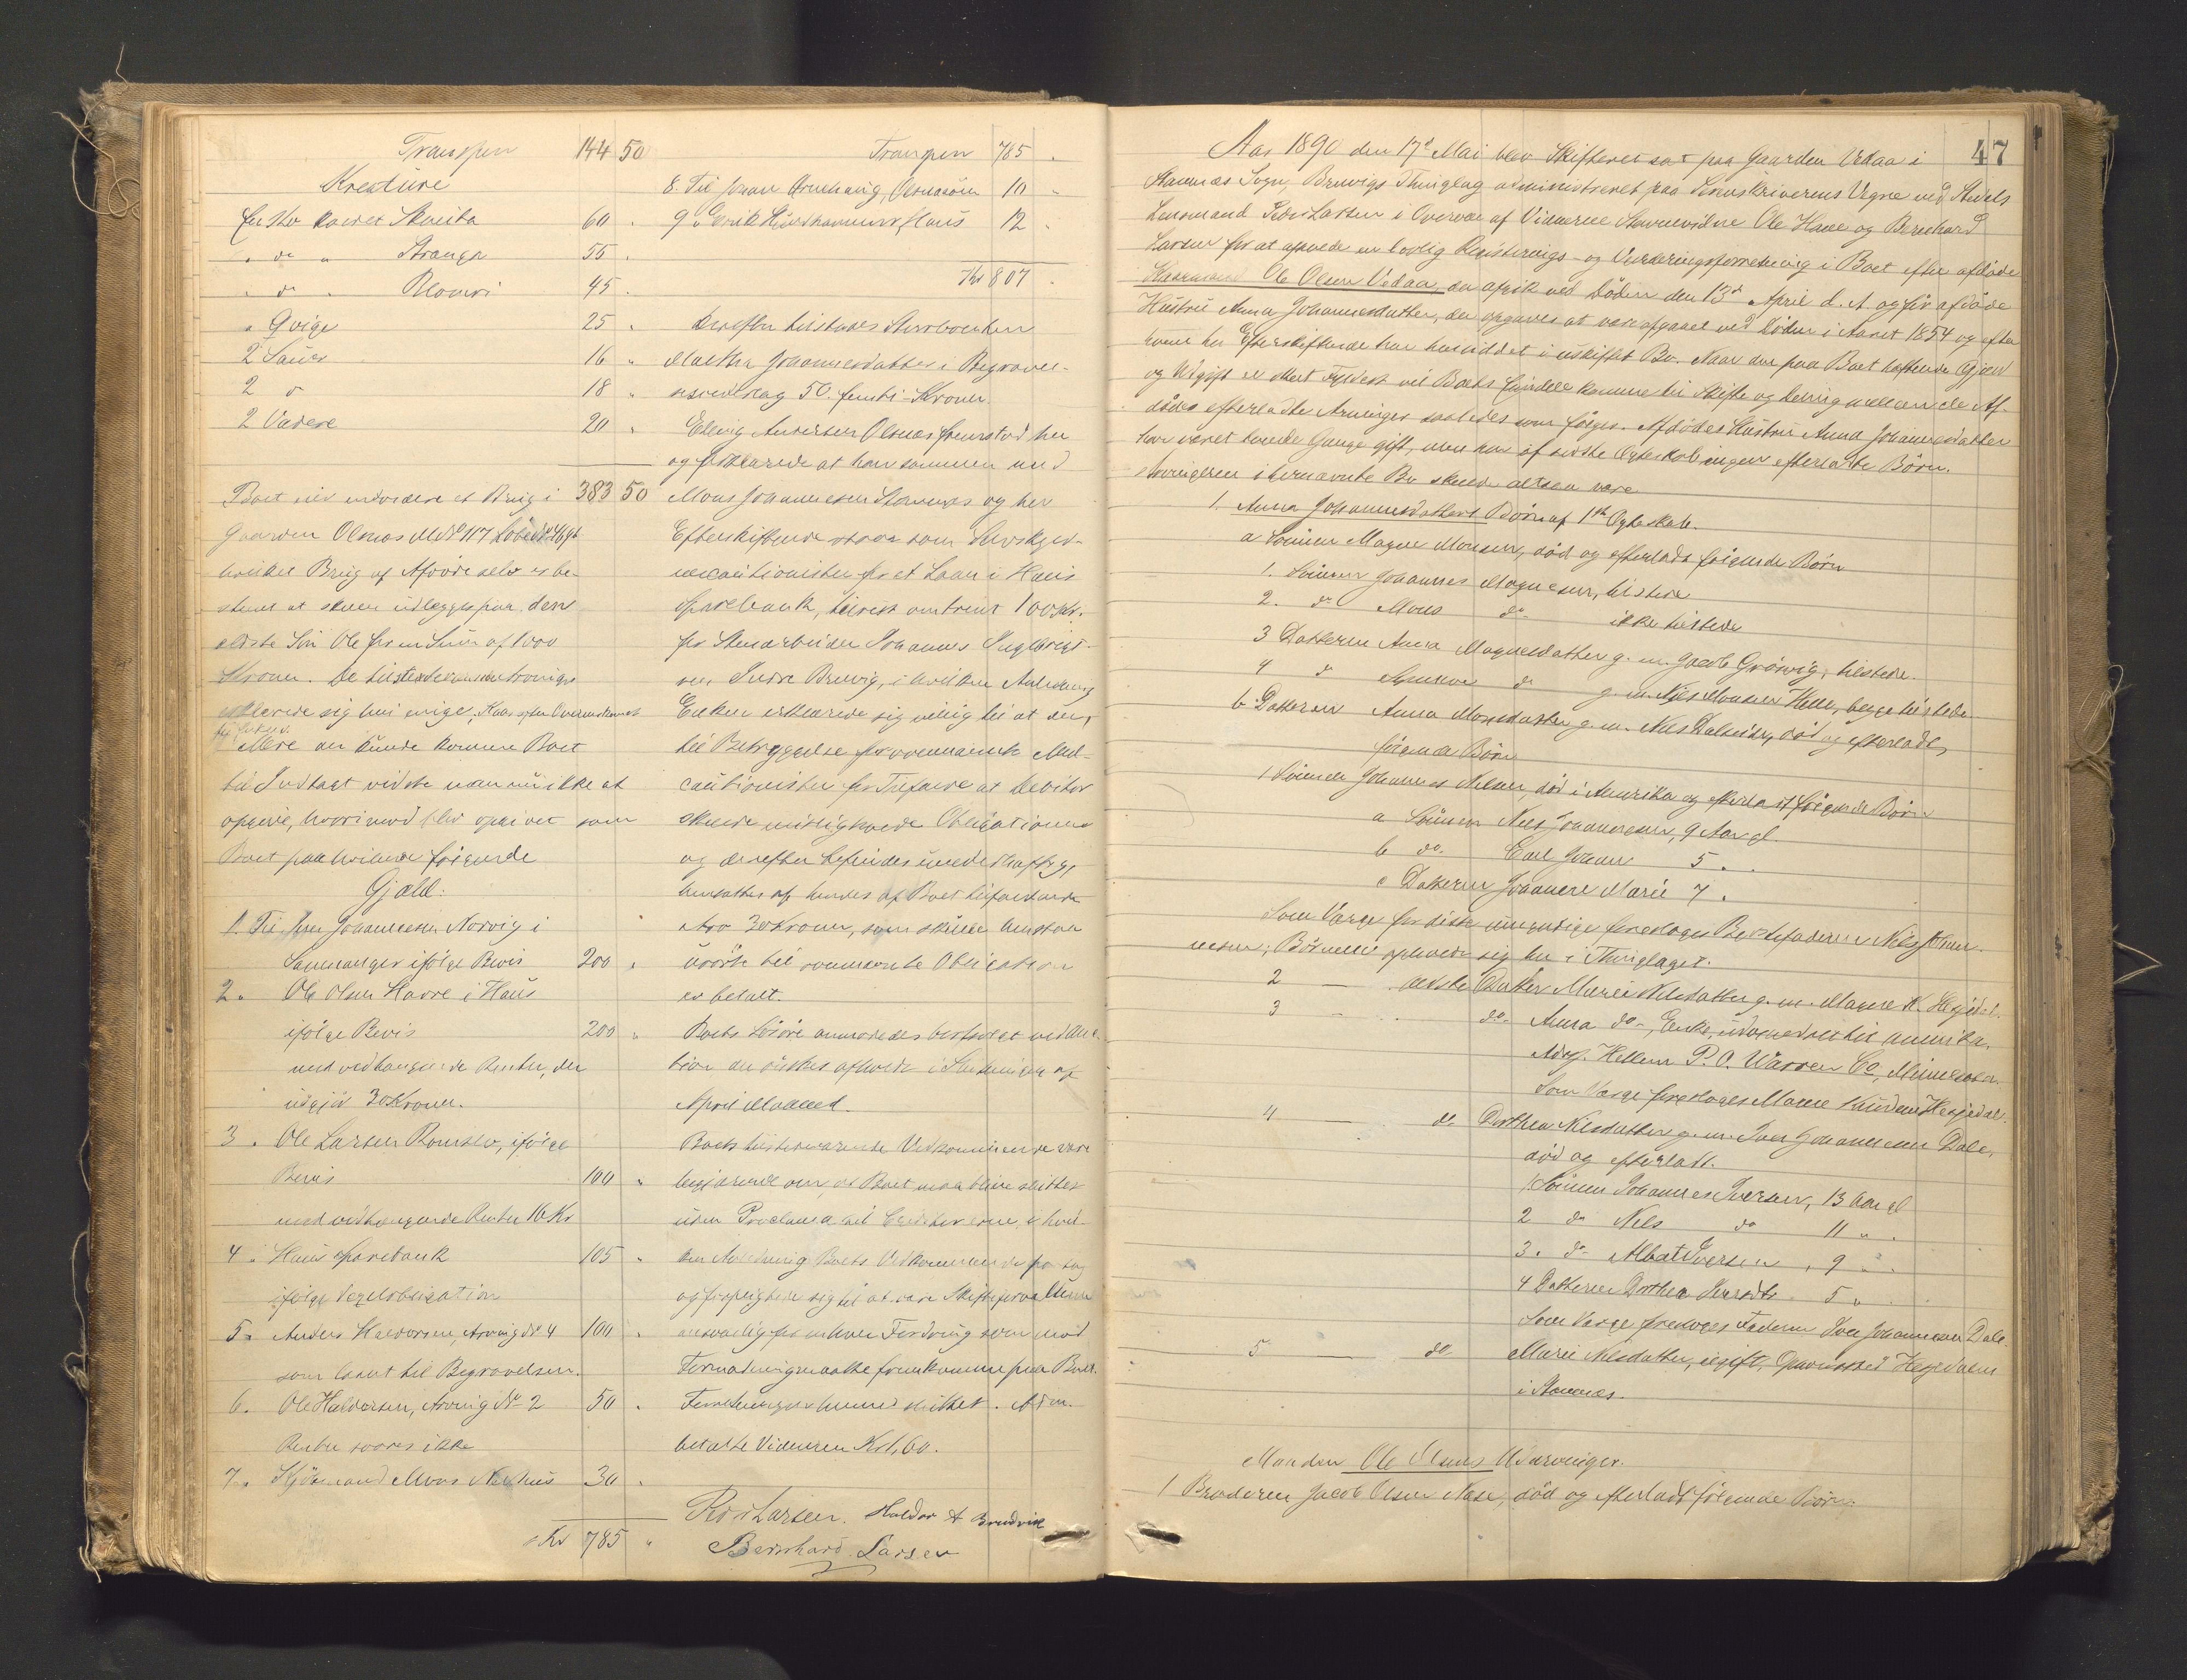 Transpen 144 50
Kreature
60
" do " Strange 55 "
" do " Blomri 45 "
" Qvige 25 "
2 Sauer 16 "
2 do 18 "
2 Vædere 20 "
383 50
Boet eier endvidere et Brug i
Gaarden Olsnæs
hvilket Brug af Afdøde selv er be-
stemt at skulle udlægges paa den
ældste Søn Ole for en Sum af 1000
Kroner. De tilstedeværende Arvinger
erklærede sig heri enige.
Mere der kunde komme Boet
til Indtægt vidste man nu ikke at
opgive, hvorimod blev opgivet som
Boet paahvilende følgende
Gjæld:
1. Til Iver Johannesen Norvig i
Samnanger ifølge Bevis 200 "
2. Ole Olsen Havre i Haus
ifølge Bevis 200 "
med vedhængende Renter, der
udgjør 30 Kroner.
3. Ole Larsen Romslo, ifølge
Bevis 100 "
med vedhængende Renter 16 Kr
4. Haus Sparebank 105 "
ifølge Vexelobligation
5. Anders Haldorsen, Arving No 4 100 "
som laant til Begravelsen.
6. Ole Haldorsen, Arving No 2 50 "
Renter svares ikke
7. Kjøbmand Mons Nedhus 30 "
Kr 785 "
Transpen 785 "
8. Til Johan Olsnæsøen 10 "
9. Haus 12 "
Kr 807 "
Derefter tilstodes Stervboenken
Martha Johannesdatter i Begravel-
sesvederlag 50. femti Kroner
Ellevig Andersen Olsnæs fremstod her
og forklarede at han sammen med
Mons Johannesen Stamnæs og her
Efterskiftende staar som Selvskyld-
nercautionister for et Laan i Haus
Sparebank, tilrest omtrent 100 Kr.
for Stenarbeider Johannes Ingebrigt-
sen, Indre Bruvig, i hvilken Anledning
Enken erklærede sig villig til at der,
til Betryggelse for ovennævnte Med-
cautionister for Tilfælde at Debitor
skulde misligholde Obligationen
og derefter befindes uvederhæftig,
hensættes af hendes af Boet tilfaldende
Arv 30 Kroner, som skulde henstaa
urørt til ovennævnte Obligation
er betalt.
Boets Løsøre anmodedes bortsolgt ved Auc-
tion der ønskes afholdt i Slutningen af
April Maaned.
Boets tilstedeværende Vedkommende vare
begjærende om, at Boet maa blive sluttet
uden Proclama til Creditorerne, i hvil-
ken Anledning Boets Vedkommende paatog
og forpligtede sig til at være Skifteforvalteren
ansvarlig for enhver Fordring som mod
Formodning maatte fremkomme paa Boet.
Forretningen hermed sluttet. Adm.
betalte Vidnerne Kr 1,60.
Peder Larsen. Haldor A Brudvik
Bernhard Larsen
47
Aar 1890 den 17de Mai blev Skifteret sat paa Gaarden Vedaa i
Stamnæs Sogn, Bruvigs Thinglag administreret paa Sorenskriverens Vegne ved Stedets
Lensmand Peder Larsen i Overvær af Vidnerne Stævnevidne Ole Havre og Bernhard
Larsen for at afholde en lovlig Registrerings- og Vurderingsforretning i Boet efter afdøde
Ole Olsen Vedaa, der afgik ved Døden den 13de April d. A. og før afdøde
Hustru Anna Johannesdatter, der opgaves at være afgaaet ved Døden i Aaret 1854 og efter
hvem her Efterskiftende har hensiddet i uskiftet Bo. Naar den paa Boet hæftende Gjæld
og Udgift er skeet Fyldest vil Boets Midler komme til Skifte og Deling mellem de Af-
dødes efterladte Arvinger saaledes som følger. Afdødes Hustru Anna Johannesdatter
har været tvende Gange gift, men har af sidste Egteskab ingen efterladte Børn.
Arvingerne i bemeldte Bo skulde altsaa være
1. Anna Johannesdatters Børn af 1ste Egteskab.
a Sønnen Magne Monsen, død og efterladt følgende Børn
1. Sønnen Johannes Magnesen, tilstede
2. do Mons do ikke tilstede
3 Datteren Anna Magnesdatter g. m. Jacob Grøsvig, tilstede.
4 do do g. m. Nils Monsen Helle, begge tilstede
b Datteren Anna Monsdatter g. m. Nils død og efterladt
følgende Børn
1 Sønnen Johannes Nilsen, død i Amerika og efterladt følgende Børn
a Sønnen Nils Johannesen, 9 Aar gl.
b do. Carl Johan 5 "
c Datteren Johanne Marie 7 "
Som Værge for disse umyndige foresloges Bedstefaderen Nils Johan-
nesen; Børnene opholde sig her i Thinglaget.
2 — ældste Datter Marie Nilsdatter g. m. Magne K. Hesjedal.
3 — do Anna do, Enke, udvandret til Amerika,
Adr. Hellem P. O. Warren Co, Minnesota.
Som Værge foresloges Magne Knudsen Hesjedal.
4 — do Dorthea Nilsdatter g. m. Iver Johannesen Dale,
død og efterladt.
1 Sønnen Johannes Iversen, 13 Aar gl
2 do Nils do 11 " "
3. do Albert Iversen, 9 " "
4 Datteren Dorthea Iversdtr 5 "
Som Værge foresloges Faderen Iver Johannesen Dale
5 — do Marie Nilsdatter, ugift, Opholdssted Hesjedalen
i Stamnæs.
Manden Ole Olsens Udarvinger.
1 Broderen Jacob Olsen død og efterladt følgende Børn: